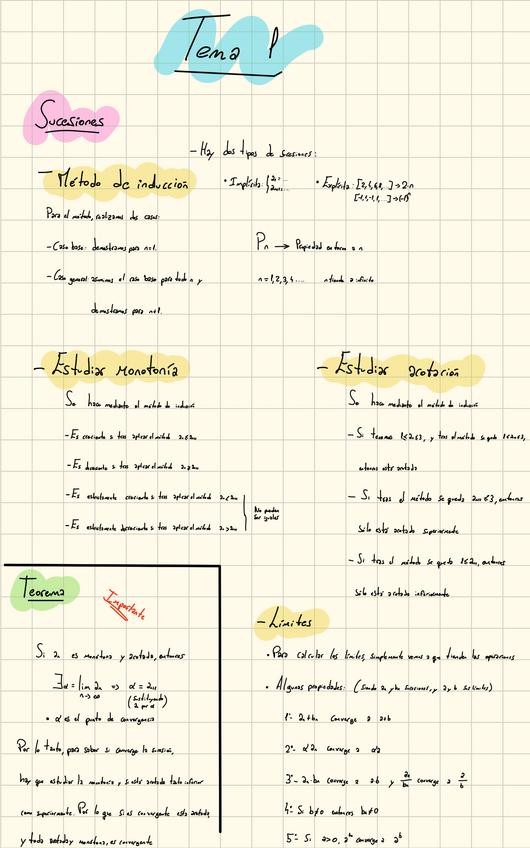 Tema 1
Sucesiones
- Hay dos tipos de sucesiones:
- Método de inducción
• Implícita:
• Explícita: [2,4,6,8, ...] → 2·n
[-1,1,-1,1, ...] → (-1)ⁿ
Para el método, realizamos dos casos:
- Caso base: demostramos para n=1.
Pn → Propiedad en torno a n
- Caso general: asumimos el caso base para todo n y
demostramos para n+1.
n=1,2,3,4.... n tiende a infinito
- Estudiar Monotonía
Se hace mediante el método de inducción
- Es creciente si tras aplicar el método an ≤ an+1
- Es decreciente si tras aplicar el método an ≥ an+1
- Es estrictamente creciente si tras aplicar el método an < an+1
- Es estrictamente decreciente si tras aplicar el método an > an+1
No pueden
ser iguales
- Estudiar acotación
Se hace mediante el método de inducción
- Si tenemos 1≤a1≤3, y tras el método se queda 1≤an+1≤3,
entonces está acotada
- Si tras el método se queda an+1≤3, entonces
sólo está acotada superiormente
- Si tras el método se queda 1≤an+1, entonces
sólo está acotada inferiormente
Teorema
Importante
Si an es monótona y acotada, entonces
∃α = lim an => α = an
n→∞
(sustituyendo
a por α)
• α es el punto de convergencia
Por lo tanto, para saber si converge la sucesión,
hay que estudiar la monotonía y si está acotada tanto inferior
como superiormente. Por lo que si es convergente está acotada,
y toda acotada y monótona, es convergente
- Límites
• Para calcular los límites, simplemente vemos a que tienden las operaciones
• Algunas propiedades: (Siendo an y bn sucesiones, y a y b sus límites)
1ª- an+bn converge a a+b
2ª- α·an converge a α·a
3ª- an·bn converge a a·b y an/bn converge a a/b
4ª- Si b≠0 entonces bn≠0
5ª- Si a>0, a^bn converge a a^b